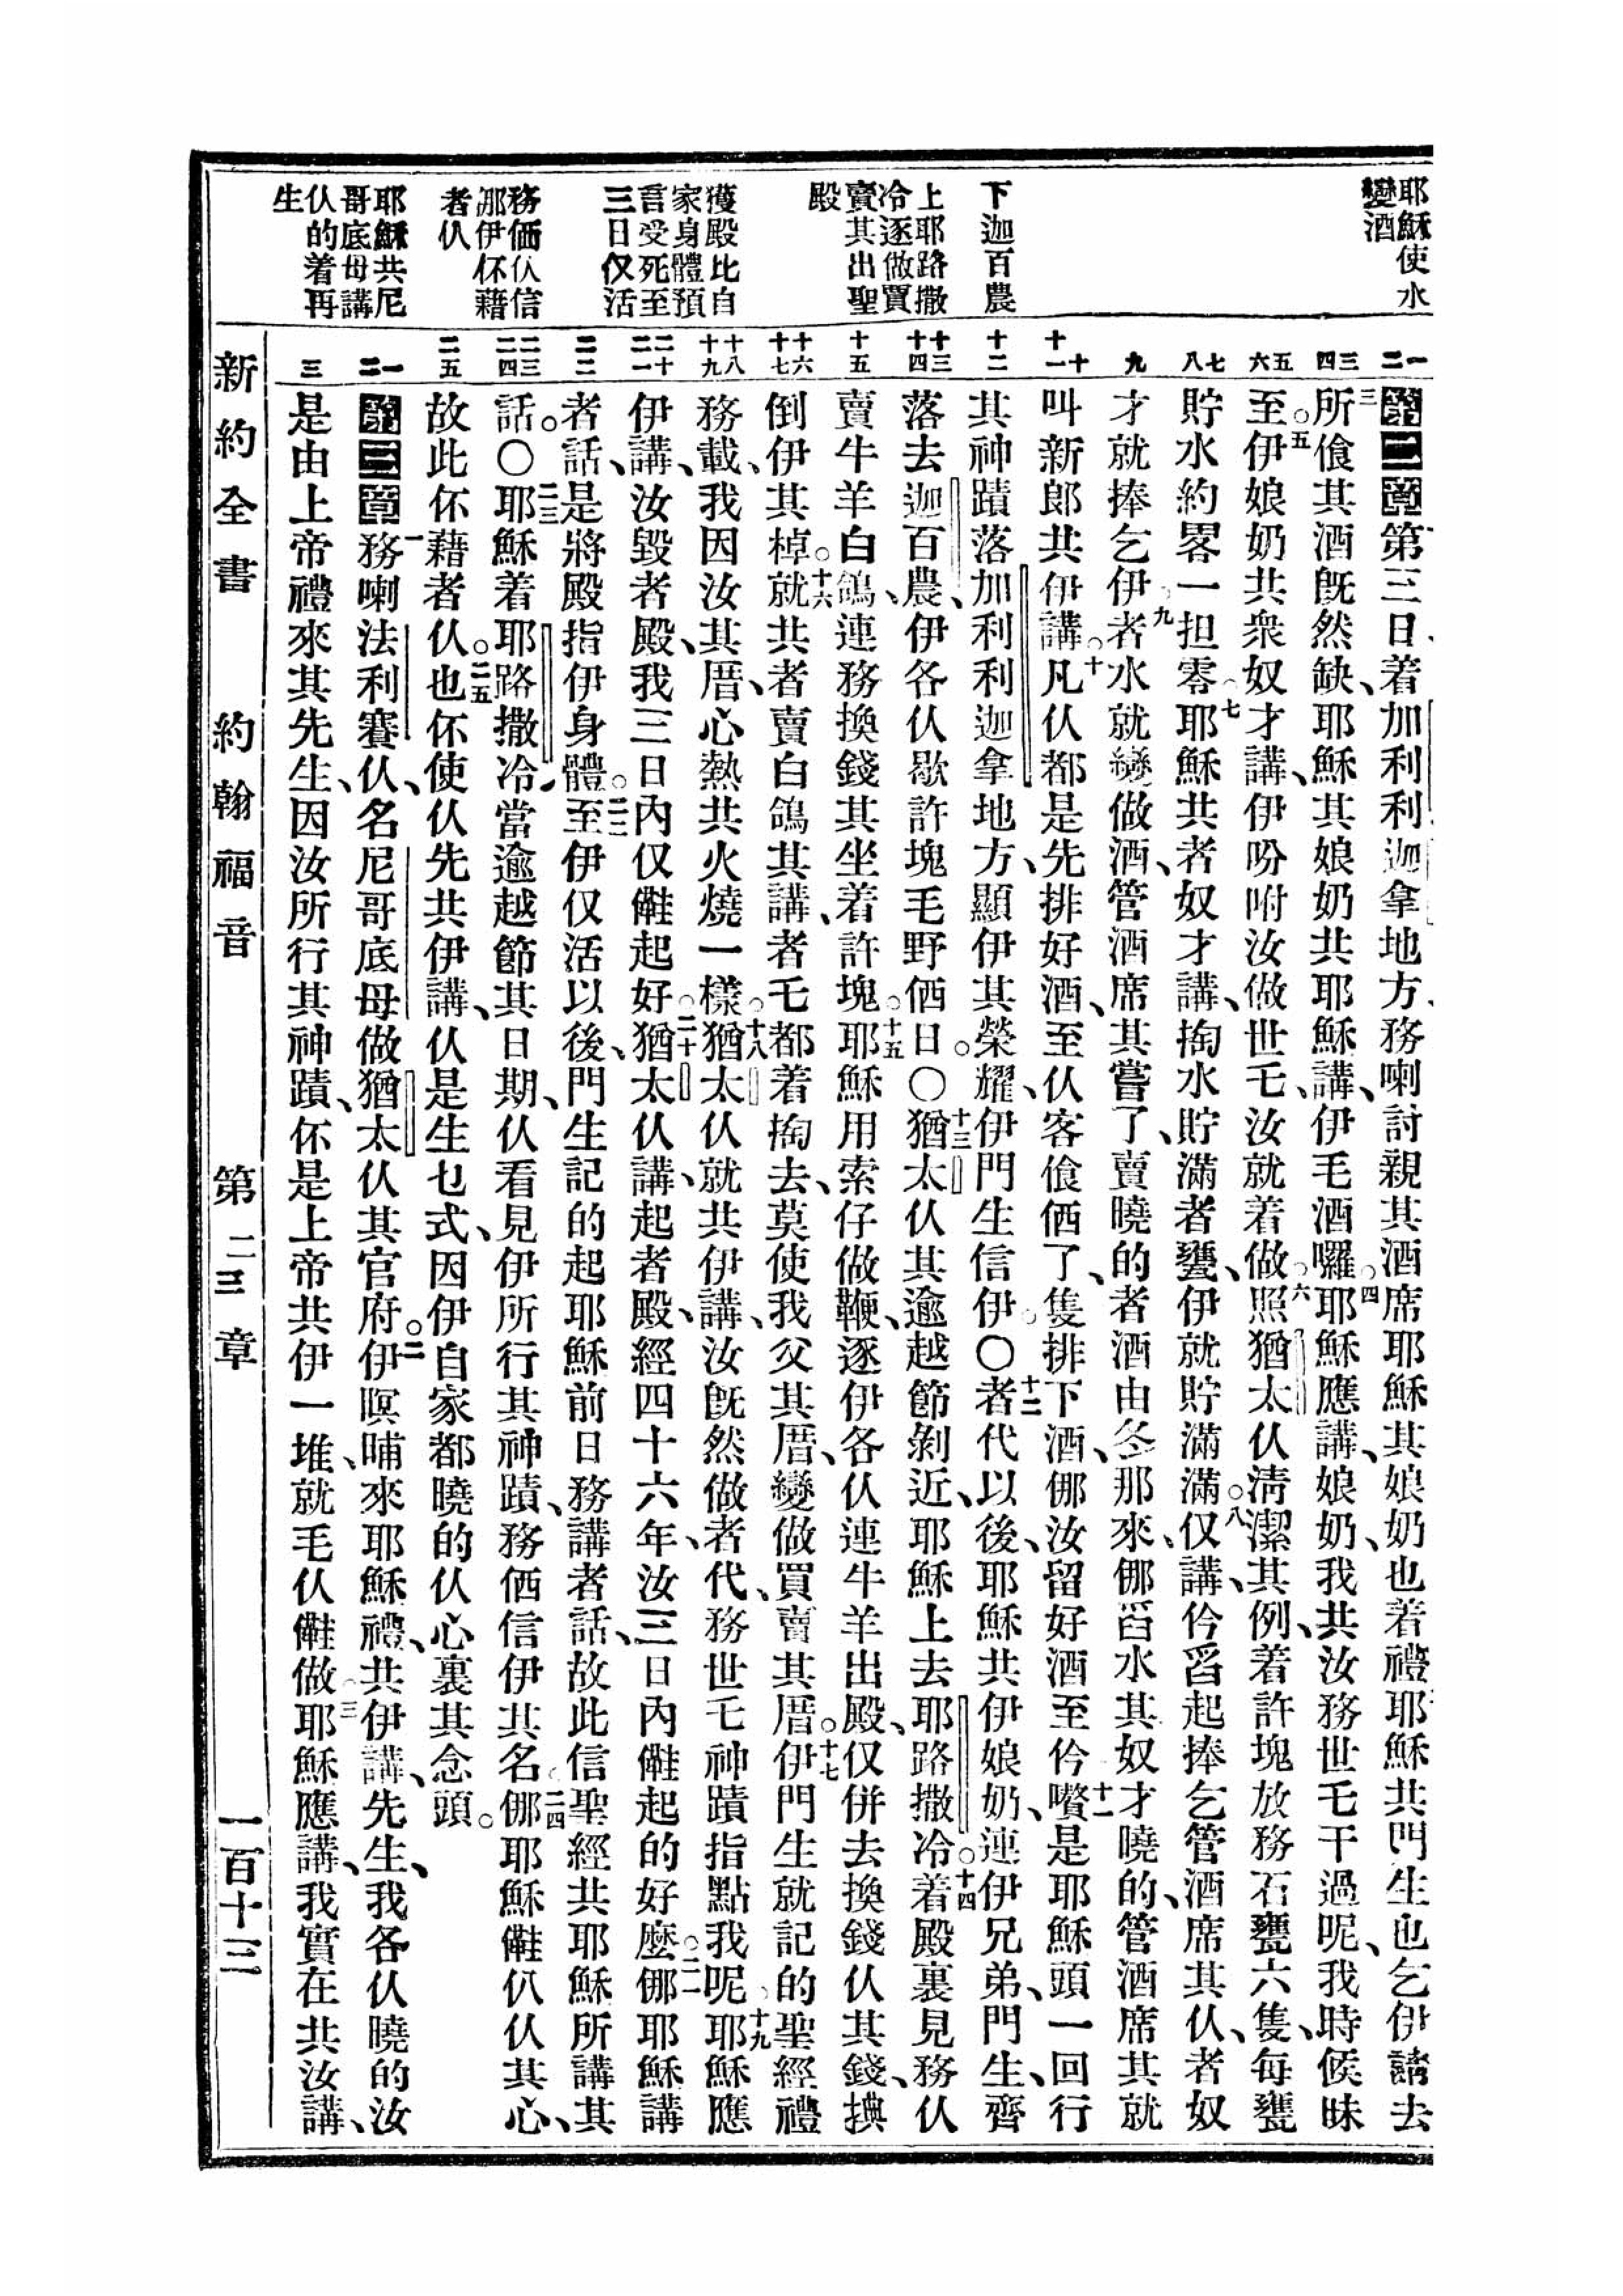 耶穌使水
變酒
下迦百農
上耶路撒
冷逐做買
賣其出聖
殿
獲殿比自
家身體預
言受死至
三日仅活
務価仈信
那伊伓藉
者仈
耶穌共尼
哥底母講
仈的着再
生
一二
三四
五六
七八
九
十十一
十二
十三十四
十五
十六十七
十八十九
二十二一
二二
二三二四
二五
一二
三
第二章第三日、着加利利迦拿地方、務喇討親其酒席耶穌其娘奶、也着禮耶穌共門生也乞伊請去
三所飡其酒旣然缺、耶穌其娘奶共耶穌講、伊毛酒囉。四耶穌應講、娘奶我共汝務世乇干過呢、我時候昧
至。五伊娘奶共衆奴才講、伊吩咐汝做世乇、汝就着做。六照猶太仈淸潔其例、着許塊放務石甕六隻、每甕
貯水約畧一担零。七耶穌共者奴才講、掏水貯滿者甕、伊就貯滿滿。八仅講、伱舀起捧乞管酒席其仈、者奴
才就捧乞伊。九者水就變做酒、管酒席其嘗了、賣曉的者酒由冬那來、㑚舀水其奴才曉的、管酒席其就
叫新郎共伊講。十凡仈都是先排好酒、至仈客飡価了、隻排下酒、㑚汝留好酒至伱。十一囋是耶穌頭一回行
其神蹟落加利利迦拿地方、顯伊其榮耀、伊門生信伊。〇十二者代以後、耶穌共伊娘奶、連伊兄弟、門生、齊
落去迦百農、伊各仈歇許塊毛野価日。〇十三猶太仈其逾越節剝近、耶穌上去耶路撒冷。十四着殿裏見務仈
賣牛羊白鴿、連務換錢其坐着許塊。十五耶穌用索仔做鞭、逐伊各仈連牛羊出殿、仅併去換錢仈其錢、㨃
倒伊其棹。十六就共者賣白鴿其講、者乇都着掏去、莫使我父其厝、變做買賣其厝。十七伊門生就記的聖經禮
務載、我因汝其厝、心熱共火燒一樣。十八猶太仈就共伊講、汝旣然做者代、務世乇神蹟指點我呢。十九耶穌應
伊講、汝毀者殿、我三日內仅𫢗起好。二十猶太仈講、起者殿、經四十六年、汝三日內𫢗起的好麼。二一㑚耶穌講
者話、是將殿指伊身體。二二至伊仅活以後、門生記的起耶穌前日務講者話、故此信聖經共耶穌所講其
話。〇二三耶穌着耶路撒冷當逾越節其日期、仈看見伊所行其神蹟、務価信伊其名。二四㑚耶穌𫢗伬仈其心、
故此伓藉者仈。二五也伓使仈先共伊講、仈是生乜式、因伊自家都曉的仈心裏其念頭。
第三章一務喇法利賽仈、名尼哥底母、做猶太仈其官府。二伊暝晡來耶穌禮、共伊講、先生、我各仈曉的汝
是由上帝禮來其先生、因汝所行其神蹟、伓是上帝共伊一堆、就毛仈𫢗做。三耶穌應講、我實在共汝講、
新約全書 約翰福音 第二三章 一百十三